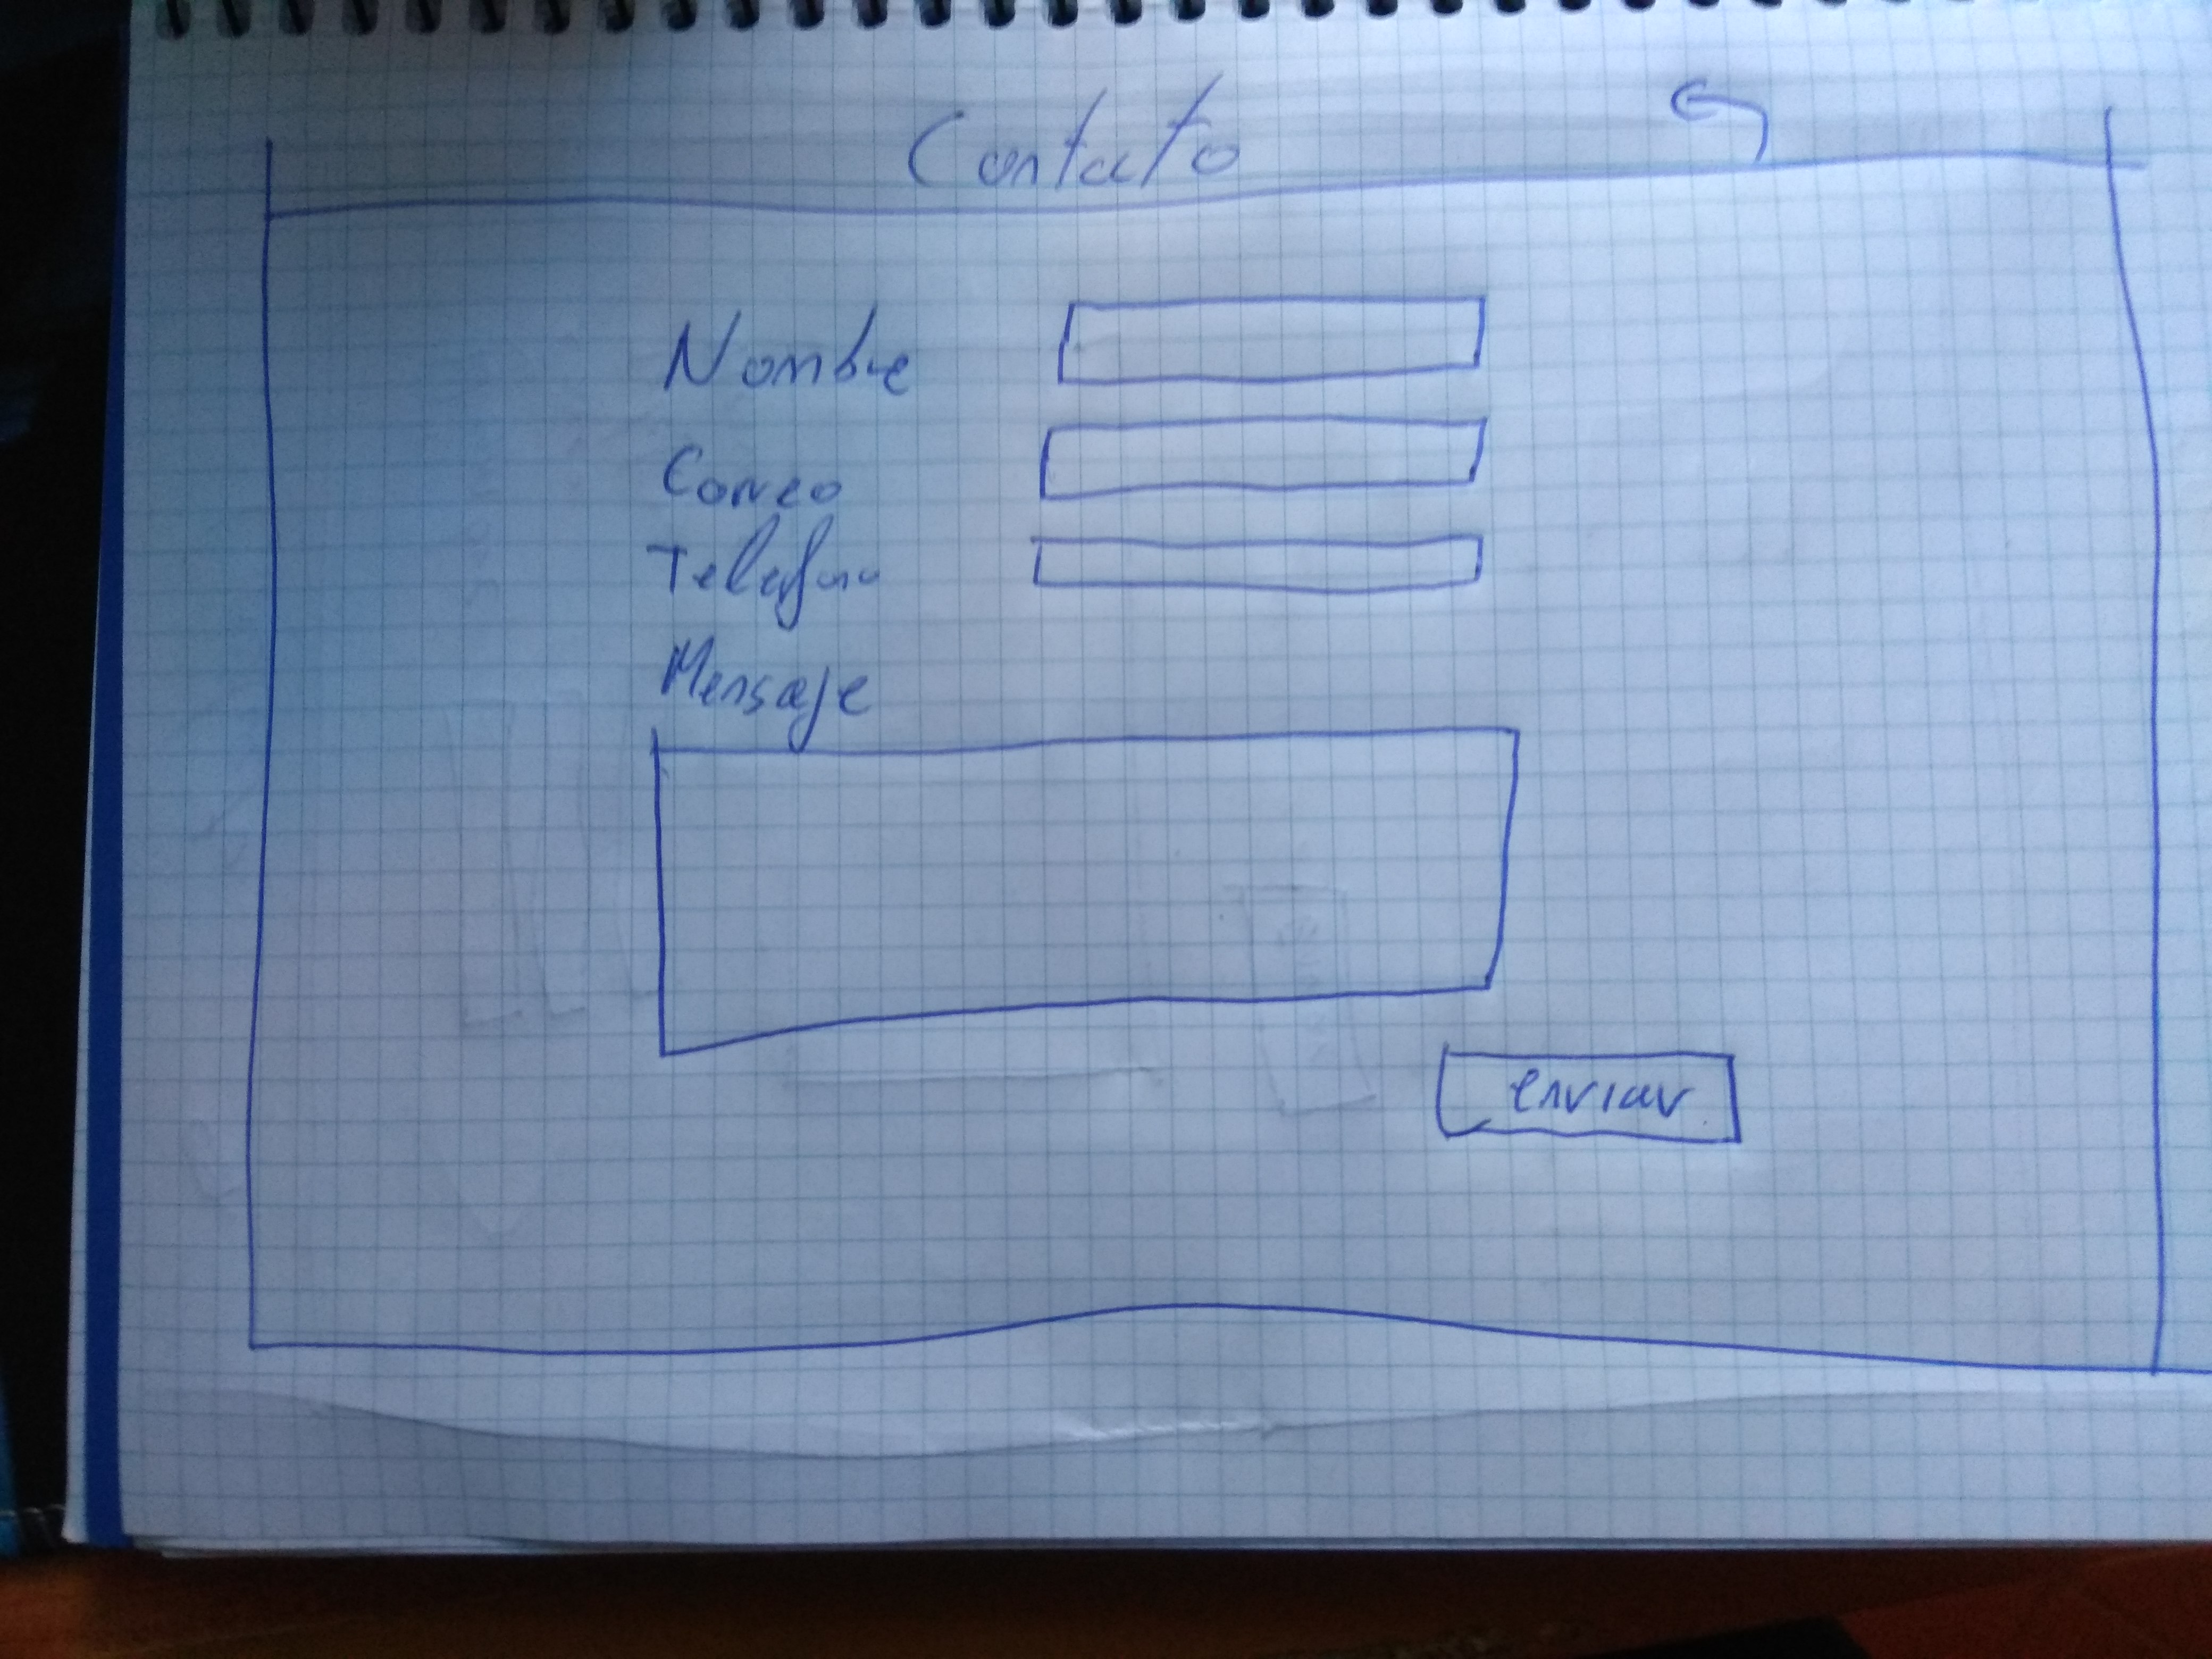 Contacto
Nombre
Correo
Telefono
Mensaje
enviar